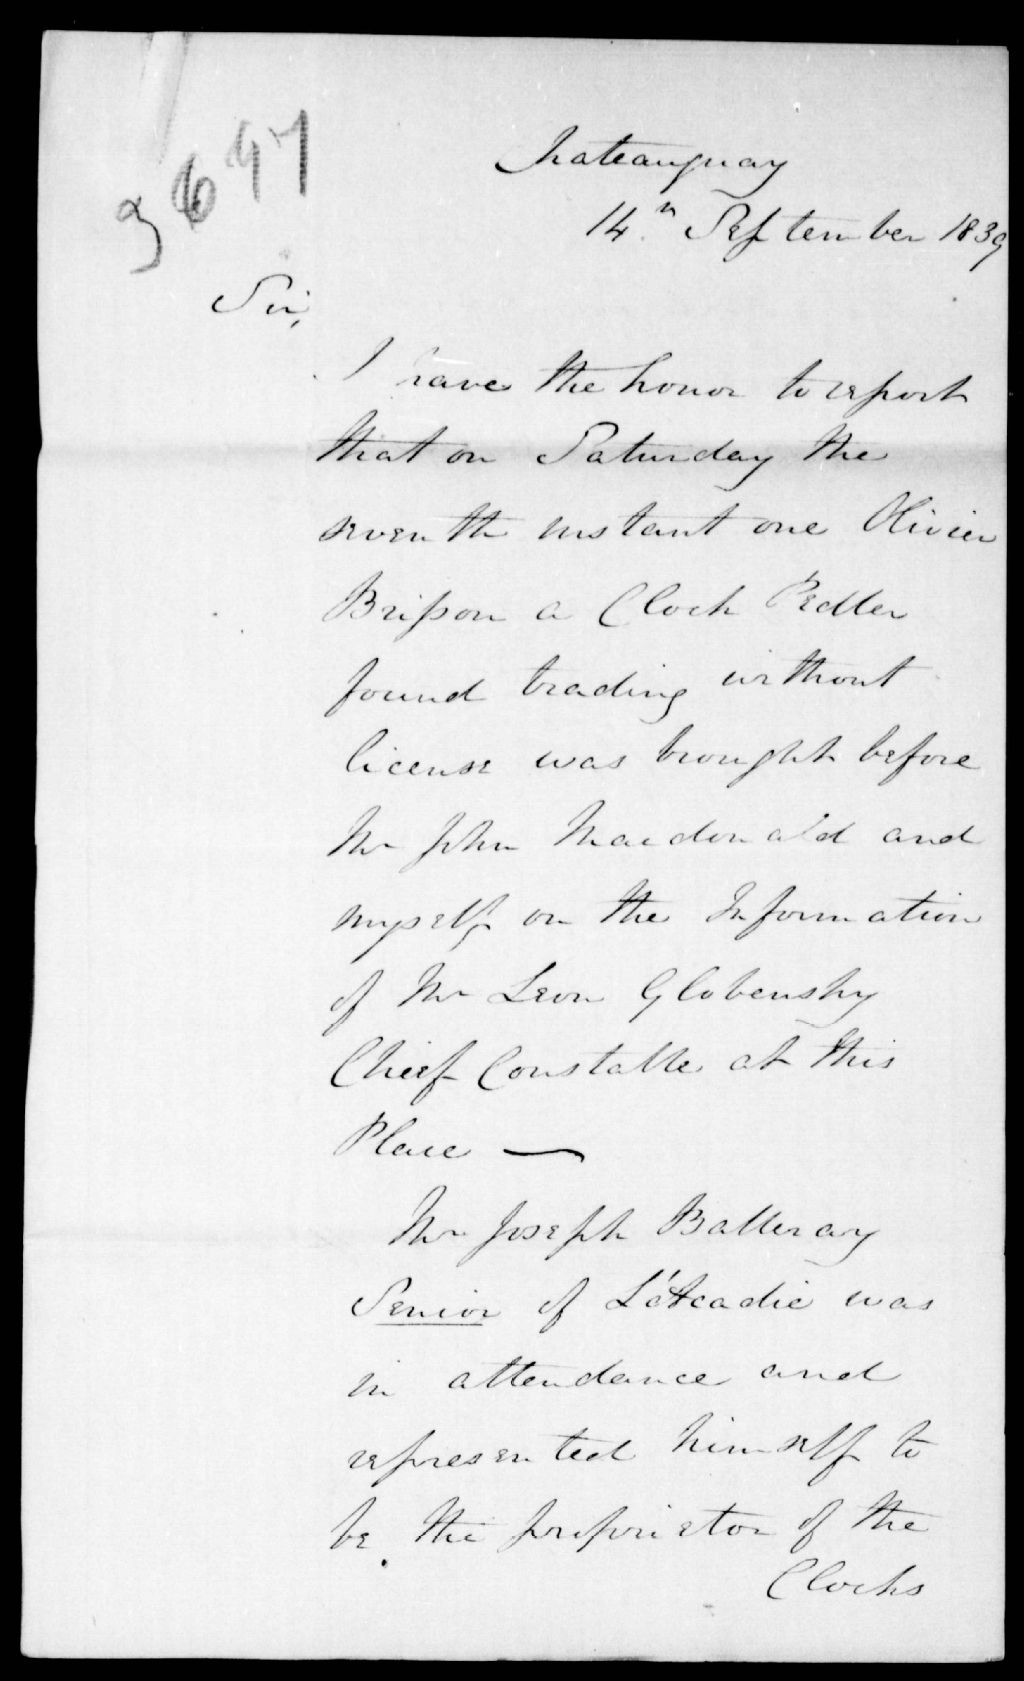 3697
Chateauguay
14th September 1839
Sir,
I have the honor to report
that on Saturday the
seventh instant one Olivier
Brisson a Clock Pedler
found trading without
license was brought before
Mr John Macdonald and
myself on the Information
of Mr Leon Globensky
Chief Constable at this
Place —
Mr Joseph Balleray
Senior of L'Acadie was
in attendance and
represented himself to
be the proprietor of the
Clocks